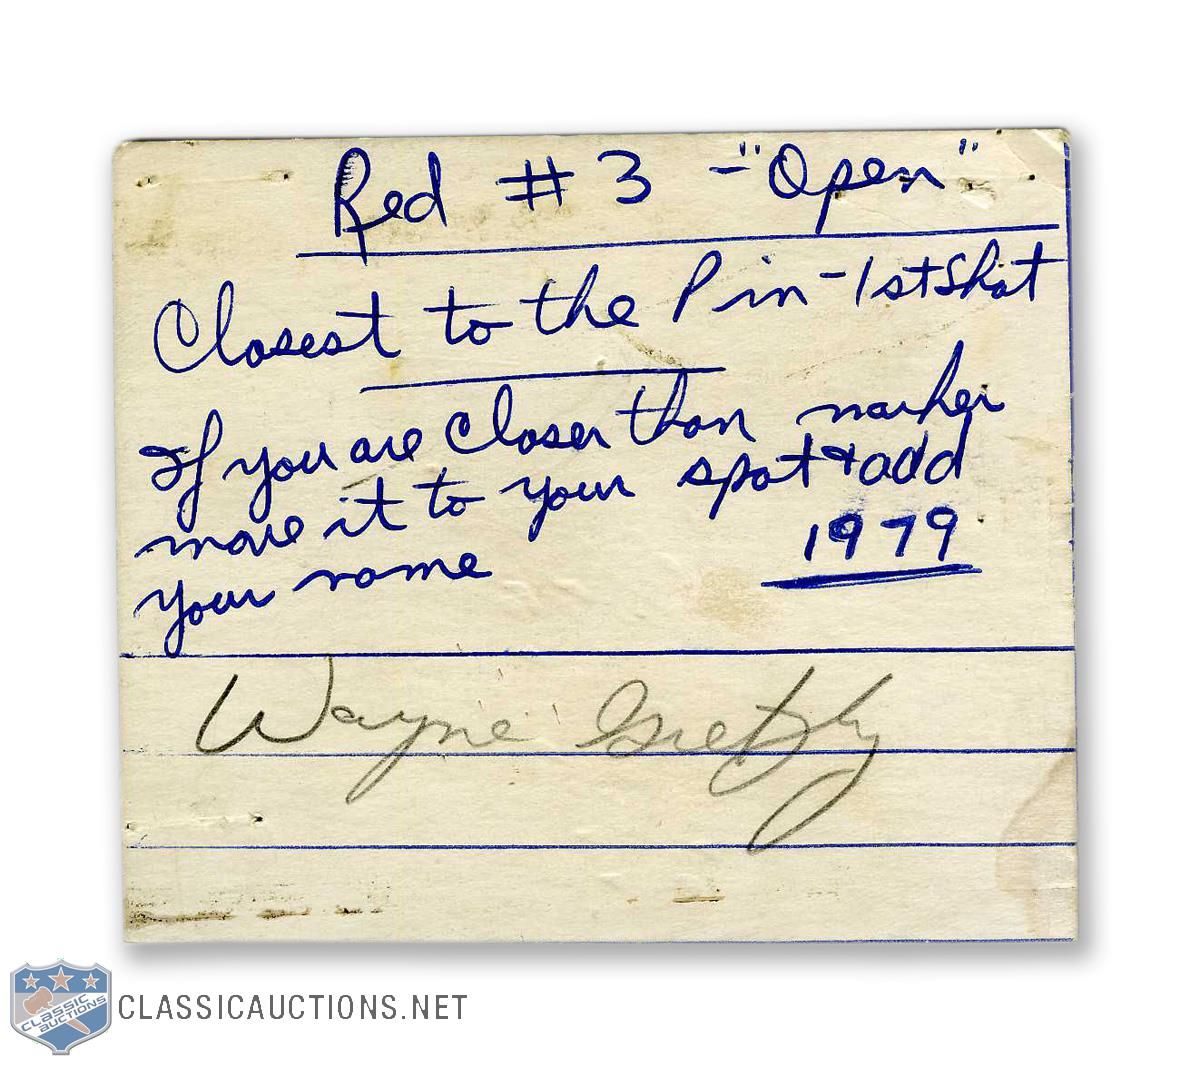 Red # 3 - "Open"
Closest to the Pin - 1st Shot
If you are closer than marker
move it to your spot & add
your name
1979
Wayne Gretzky
CLASSIC
AUCTIONS
CLASSICAUCTIONS.NET